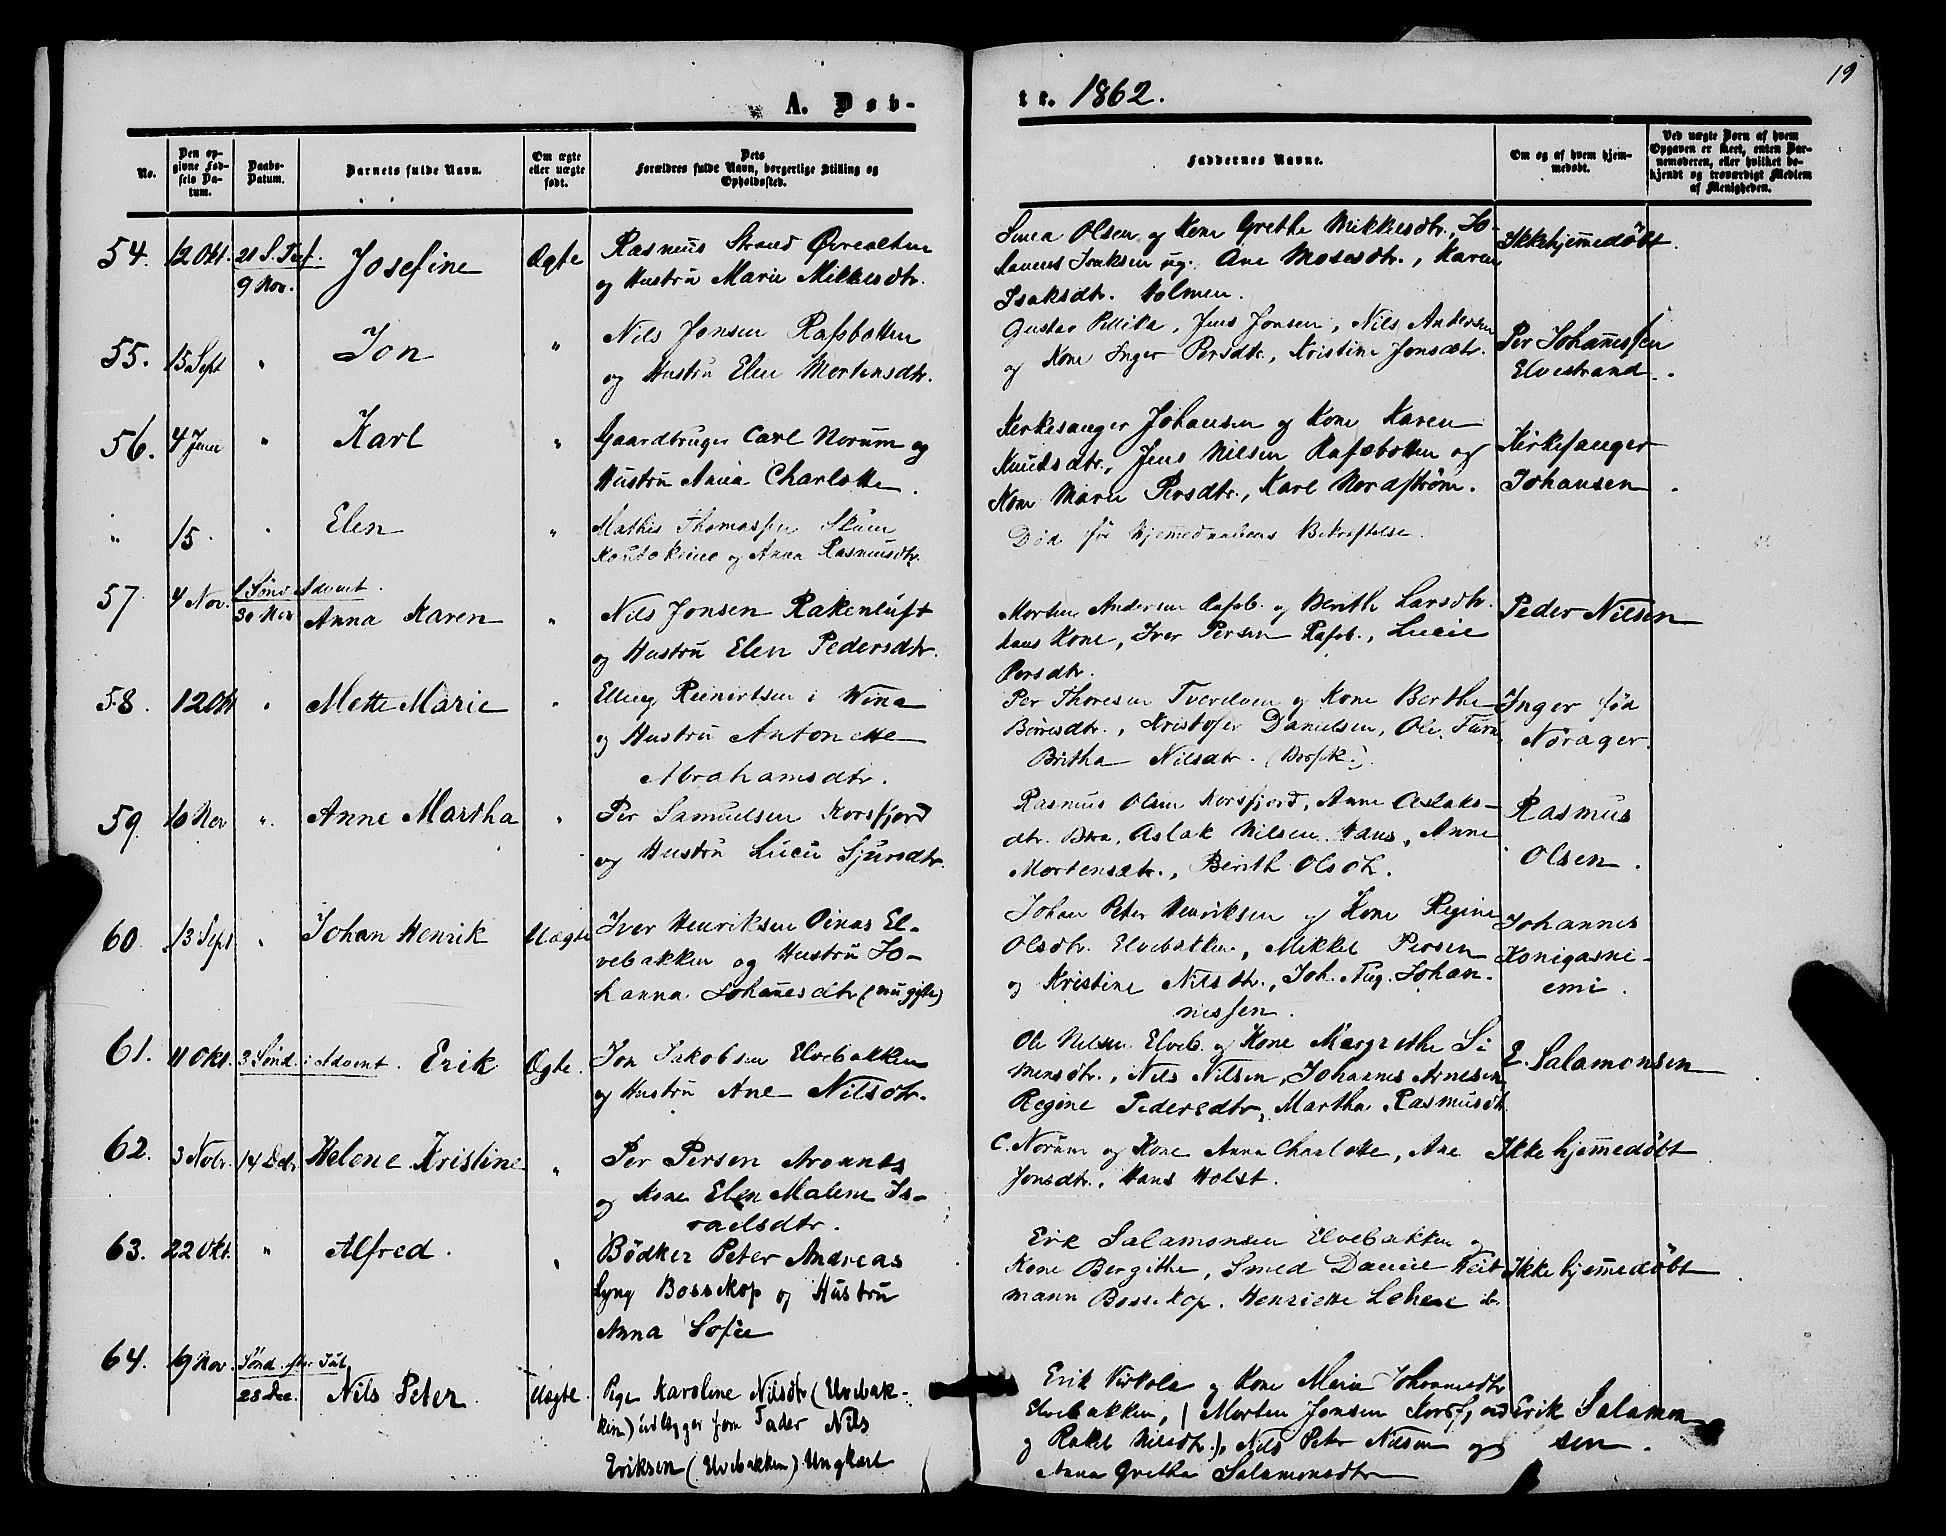 19
A. Døb-
te. 1862.
No.
Den op-
givne Fød-
sels Da-
tum.
Daabs-
Datum.
Barnets fulde Navn.
Om ægte
eller uægte
født.
Dets
Forældres fulde Navn, borgerlige Stilling og
Opholdssted.
Faddernes Navne.
Om og af hvem hjem-
medøbt.
Ved uægte Børn af hvem
Opgaven er skeet, enten Bar-
nemoderen, eller hvilket be-
kjendt og troværdigt Medlem
af Menigheden.
54. 12 Okt. 21 S. Tref.
9 Nov. Josefine Ægte
Rasmus Strand Øvrealten
og Hustru Marie Mikkesdtr.
Olsen og Kone Grethe Mikkesdtr., Jo-
hannes Isaksen og Ane Mosesdtr., Karen
Isaksdtr. Holmen.
Ikke hjemmedøbt.
55. 15 Sept " Jon "
Nils Jonsen Rafsbotten
og Hustru Elen Mortensdtr.
Gustav Pillika, Jens Jonsen, Nils Andersen
og Kone Inger Persdtr., Kristine Jonsdtr.
Per Johannessen
Elvestrand.
56. 4 Juni " Karl "
Gaardbruger Carl Norum og
Hustru Anna Charlotte.
Kirkesanger Johansen og Kone Karen
Knudsdtr., Jens Nilsen Rafsbotten og
Kone Marie Persdtr., Karl Nordstrøm.
Kirkesanger
Johansen.
" 15 " Elen "
Mathis Thomassen Skum
Koutokeino og Anna Rasmusdtr.
Død før Hjemmedaabens Bekræftelse.
57. 4 Nov. 1 Sønd. Advent.
30 Nov Anna Karen "
Nils Jonsen Rakenluft
og Hustru Elen Pedersdtr.
Morten Andersen Rafsb. og Berith Larsdtr.
hans Kone, Iver Persen Rafsb., Lucie
Persdtr.
Peder Nilsen
58. 12 Okt " Mette Marie "
Elling Reinertsen i Wina
og Hustru Antonette
Abrahamsdtr.
Per Thoresen Tverelven og Kone Berthe
Børresdtr., Kristofer Danielsen, Ole
Britha Nilsdtr.
Inger fød
Nørager.
59. 10 Nov " Anne Martha "
Per Samuelsen Korsfjord
og Hustru Lucie Sjursdtr.
Rasmus Olsen Korsfjord, Anne Aslaks-
dtr., Aslak Nilsen, Anne
Mortensdtr., Berith Olsdtr.
Rasmus
Olsen.
60. 13 Sept " Johan Henrik Uægte
Iver Henriksen Oinas El-
vebakken og Hustru Jo-
hanna Johannesdtr (nu gifte)
Johan Peter Henriksen og Kone Regine
Olsdtr. Elvebakken, Mikkel Persen
og Kristine Nilsdtr., Joh. Aug. Johan-
nessen.
Johannes
Konigasni-
emi.
61. 11 Okt. 3 Sønd. i Advent. Erik Ægte.
Jon Jakobsen Elvebakken
og Hustru Ane Nilsdtr.
Ole Nilsen Elveb. og Kone Margrethe Si-
monsdtr., Nils Nilsen, Johannes Arnesen,
Regine Pedersdtr., Martha Rasmusdtr.
E. Salamonsen
62. 3 Nobr. 14 Decbr Helene Kristine "
Per Persen Aronnes
og Kone Elen Malene Is-
raelsdtr.
C. Norum og Kone Anna Charlotte, Ane
Jonsdtr., Hans Holst.
Ikke hjemmedøbt
63. 22 Okt. " Alfred. "
Bødker Peter Andreas
Lyng Bossekop og Hustru
Anna Sofie
Erik Salamonsen Elvebakken og
Kone Bergithe, Smed Daniel Heit-
mann Bossekop, Henriette
Ikke hjemmedøbt
64. 9 Nov. Sønd. efter Jul
28 Dec. Nils Peter Uægte.
Pige Karoline Nilsdtr (Elvebak-
ken) udlægger som Fader Nils
Eriksen (Elvebakken) Ungkarl
Erik Virkola og Kone Maria Johannesdtr
Elvebakken, (Morten Jonsen Korsfjord
og Rakel Nilsdtr.), Nils Peter Nilsen og
Anna Gretha Salamonsdtr
Erik Salamon-
sen.